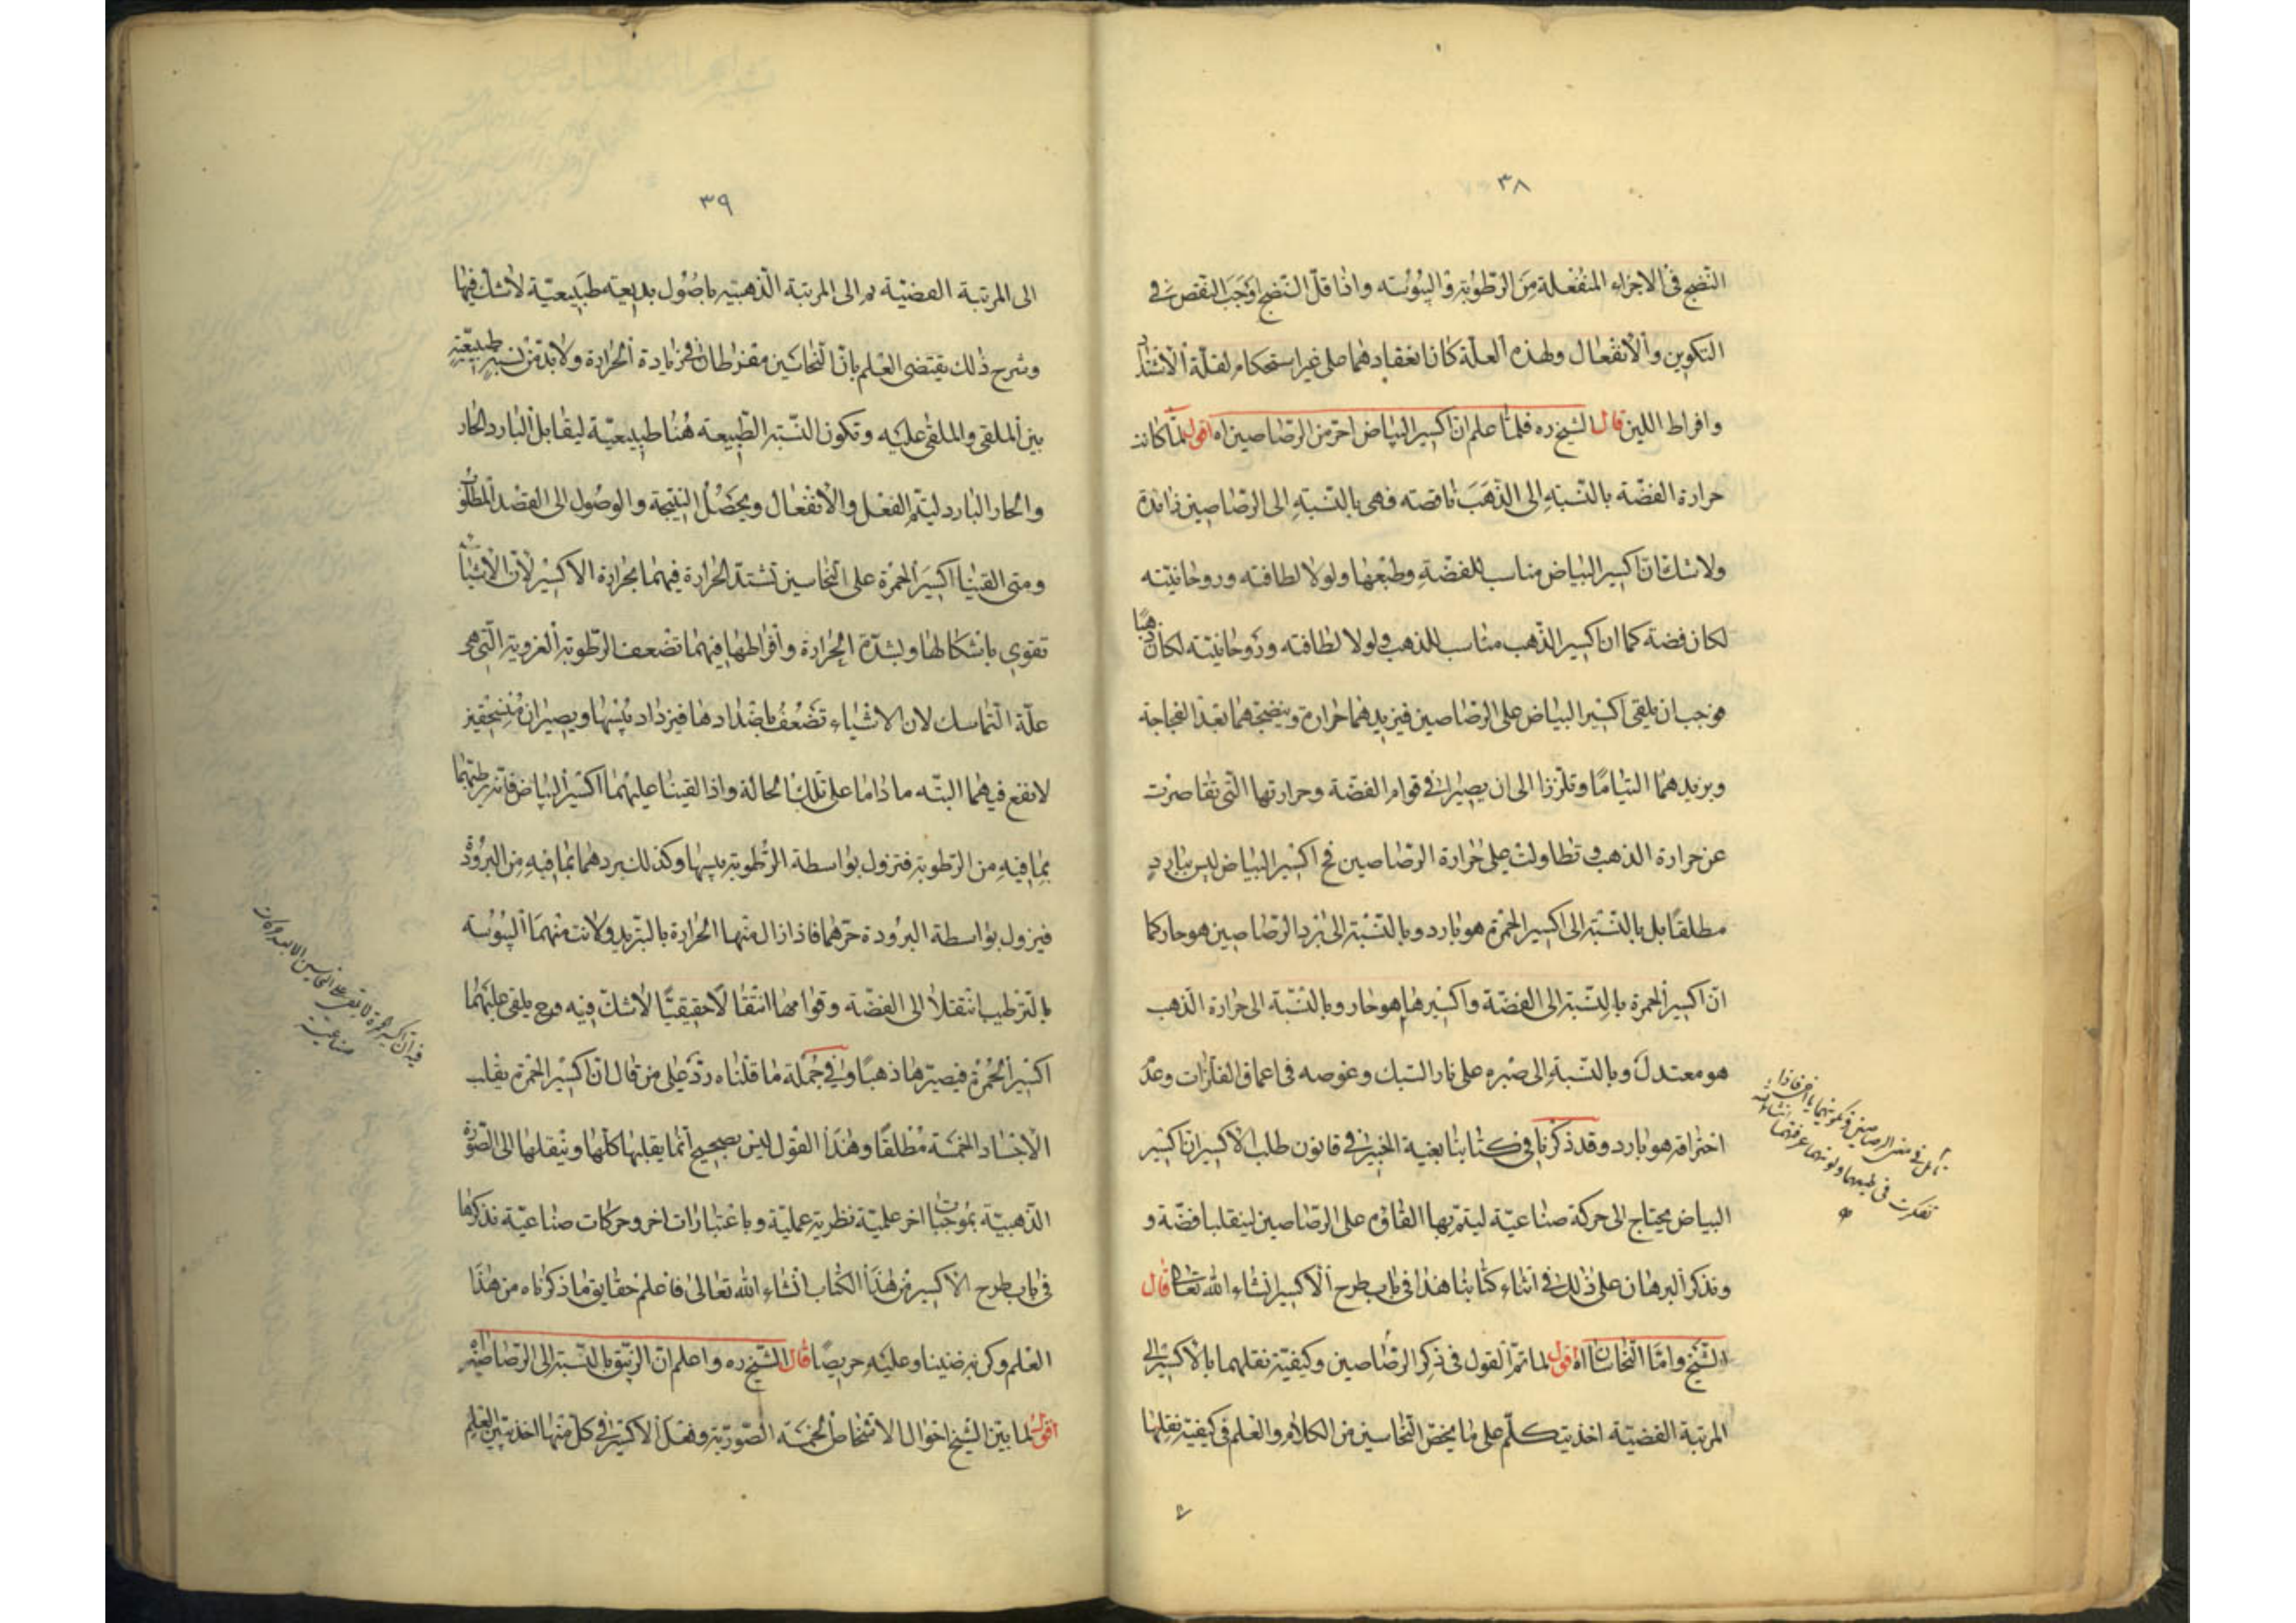 ٣٨
النّضج فى الاجزاء المنفعلة من الرّطوبة و اليبوسة واذا قلّ النضج اوجب النقص فى
التكوين والانفعال ولهذه العلّة كان انعقادهما على غير استحكام لقلّة الاشتداد
وافراط اللين قال الشيخ ره فلمّا علم انّ اكسير البياض احرّ من الرصاصين اه اقول لمّا كانت
حرارة الفضّة بالنّسبة الى الذّهب ناقصة فهى بالنّسبة الى الرّصاصين زائدة
ولا شك انّ اكسير البياض مناسب للفضّة وطبعها ولولا لطافته وروحانيّته
لكان فضة كما ان اكسير الذّهب مناسب للذهب ولولا لطافته وروحانيّته لكان ذهبًا
فوجب ان يلقى اكسير البياض على الرّصاصين فيزيدهما حرارة وينضجهما بعد الفجاجة
ويزيدهما التيامًا وتلززا الى ان يصيرا فى قوام الفضّة وحرارتها الّتى تقاصرت
عن حرارة الذهب و تطاولت على حرارة الرّصاصين فح اكسير البياض ليس ببارد
مطلقًا بل بالنّسبة الى اكسير الحمرة هو بارد وبالنّسبة الى برد الرّصاصين هو حار كما
انّ اكسير الحمرة بالنّسبة الى الفضّة واكسيرها هو حار وبالنّسبة الى حرارة الذّهب
هو معتدل وبالنّسبة الى صبره على نار السّبك وغوصه فى اعماق الفلزّات وعدم
احتراقه هو بارد وقد ذكرنا فى كتابنا بغية الخبير فى قانون طلب الاكسير ان اكسير
البياض يحتاج الى حركة صناعيّة ليتمّ بها القاؤه على الرّصاصين لينقلبا فضّة و
ونذكر البرهان على ذلك فى اثناء كتابنا هذا فى باب طرح الاكسير انشاء الله تعالى قال
الشيخ وامّا النّحاسان اه اقول لما تمّ القول فى ذكر الرّصاصين وكيفيّة نقلهما بالاكسير الى
المرتبة الفضيّة اخذ يتكلّم على ما يخصّ النّحاسين من الكلام والعلم فى كيفيّة نقلها
٣٩
الى المرتبة الفضيّة ثم الى المرتبة الّذهبيّه باصول بديعية طبيعيّة لا شك فيها
وشرح ذلك يقتضى العلم بانّ النّحاسين مفرطان فى زيادة الحرارة ولا بدّ من نسبة طبيعيّة
بين الملقى والملقى عليه وتكون النّسبة الطّبيعة هنا طبيعيّة ليقابل البارد الحار
والحار البارد ليتم الفعل والانفعال ويحصل النتيجة والوصول الى القصد المطلوب
ومتى القينا اكسير الحمرة على النّحاسين تشتدّ الحرارة فيهما بحرارة الاكسير لأنّ الأشياء
تقوى باشكالها وبشدّة الحرارة وافراطها فيهما تضعف الرّطوبة الغروية الّتى هى
علّة التّماسك لان الاشياء تضعف باضدادها فيزداد يبسها ويصيران منسحقين
لا نفع فيهما البتّه ما داما على تلك الحالة واذا القينا عليهما اكسير البياض فانّه يرطبهما
بما فيه من الرّطوبة فتزول بواسطة الرّطوبة يبسها وكذلك يبردهما بما فيه من البرودة
فيزول بواسطة البرودة حرّهما فاذا زال منهما الحرارة بالتبريد ولانت منهما اليبوسة
بالتّرطيب انتقلا الى الفضّة وقوامها انتقالا حقيقيّا لا شكّ فيه وح يلقى عليهما
اكسير الحمرة فيصيّرها ذهبًا وفى جملة ما قلناه ردّ على من قال انّ اكسير الحمرة يقلب
الاجساد الخمسة مطلقًا وهذا القول ليس بصحيح انّما يقلبها كلّها وينقلها الى الصّورة
الذّهبيّة بموجبات اخر علميّة نظرية عمليّة وباعتبارات اخر وحركات صناعيّة نذكرها
فى باب طرح الاكسير من هذا الكتاب انشاء الله تعالى فاعلم حقايق ما ذكرناه من هذا
العلم وكن به ضنينا وعليه حريصًا قال الشّيخ ره واعلم انّ الزّيبق بالنّسبة الى الرّصاصين
اقول لما بيّن الشيخ احوال الاشخاص الخمسة الصّوريّة وفعل الاكسير فى كلّ منها اخذ يبيّن العلم